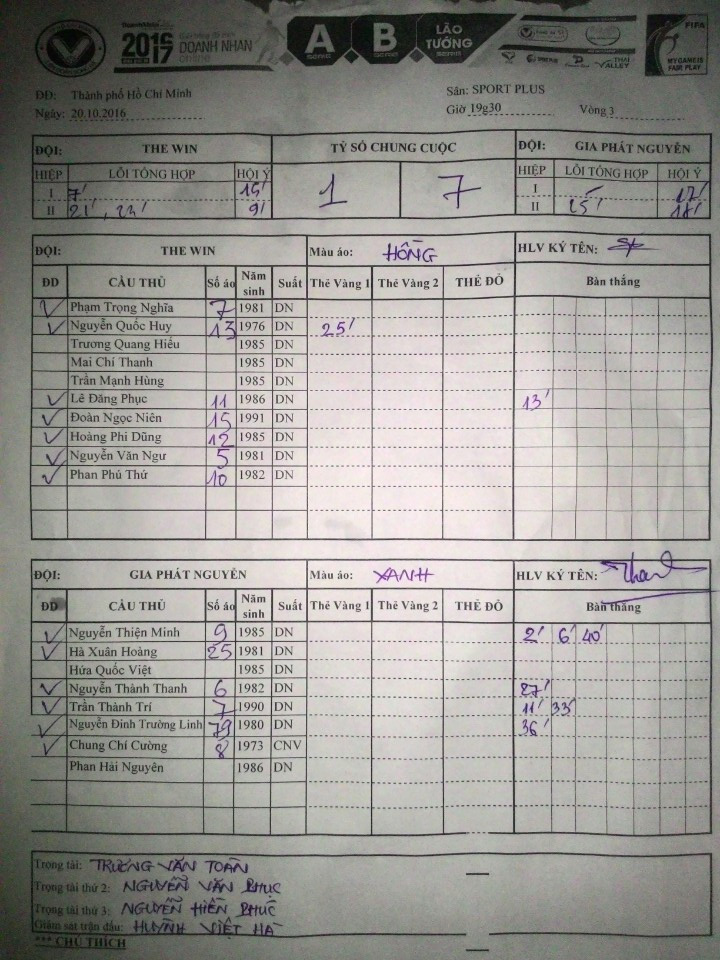 2016 2017 DOANH NHÂN online A B LÃO TƯỚNG THAI VALLEY FIFA
MY GAME IS FAIR PLAY
ĐĐ: Thành phố Hồ Chí Minh Sân: SPORT PLUS
Ngày: 20.10.2016 Giờ 19g30 Vòng 3
ĐỘI: THE WIN TỶ SỐ CHUNG CUỘC ĐỘI: GIA PHÁT NGUYỄN
HIỆP LỖI TỔNG HỢP HỘI Ý 1 7 HIỆP LỖI TỔNG HỢP HỘI Ý
I 7' 15' I 17'
II 21', 23' 9' II 25' 18'
ĐỘI: THE WIN Màu áo: HỒNG HLV KÝ TÊN:
ĐD CẦU THỦ Số áo Năm sinh Suất Thẻ Vàng 1 Thẻ Vàng 2 THẺ ĐỎ Bàn thắng
Phạm Trọng Nghĩa 7 1981 DN
Nguyễn Quốc Huy 13 1976 DN 25'
Trương Quang Hiếu 1985 DN
Mai Chí Thanh 1985 DN
Trần Mạnh Hùng 1985 DN
Lê Đăng Phục 11 1986 DN 13'
Đoàn Ngọc Niên 15 1991 DN
Hoàng Phi Dũng 12 1985 DN
Nguyễn Văn Ngư 5 1981 DN
Phan Phú Thứ 10 1982 DN
ĐỘI: GIA PHÁT NGUYỄN Màu áo: XANH HLV KÝ TÊN:
ĐD CẦU THỦ Số áo Năm sinh Suất Thẻ Vàng 1 Thẻ Vàng 2 THẺ ĐỎ Bàn thắng
Nguyễn Thiện Minh 9 1985 DN 2' 6' 40'
Hà Xuân Hoàng 25 1981 DN
Hứa Quốc Việt 1985 DN
Nguyễn Thành Thanh 6 1982 DN 27'
Trần Thành Trí 7 1990 DN 11' 33'
Nguyễn Đình Trường Linh 79 1980 DN 36'
Chung Chí Cường 8 1973 CNV
Phan Hải Nguyên 1986 DN
Trọng tài: TRƯƠNG VĂN TOÀN
Trọng tài thứ 2: NGUYỄN VĂN PHỤC
Trọng tài thứ 3: NGUYỄN HIỀN PHÚC
Giám sát trận đấu: HUỲNH VIỆT HÀ
*** CHÚ THÍCH